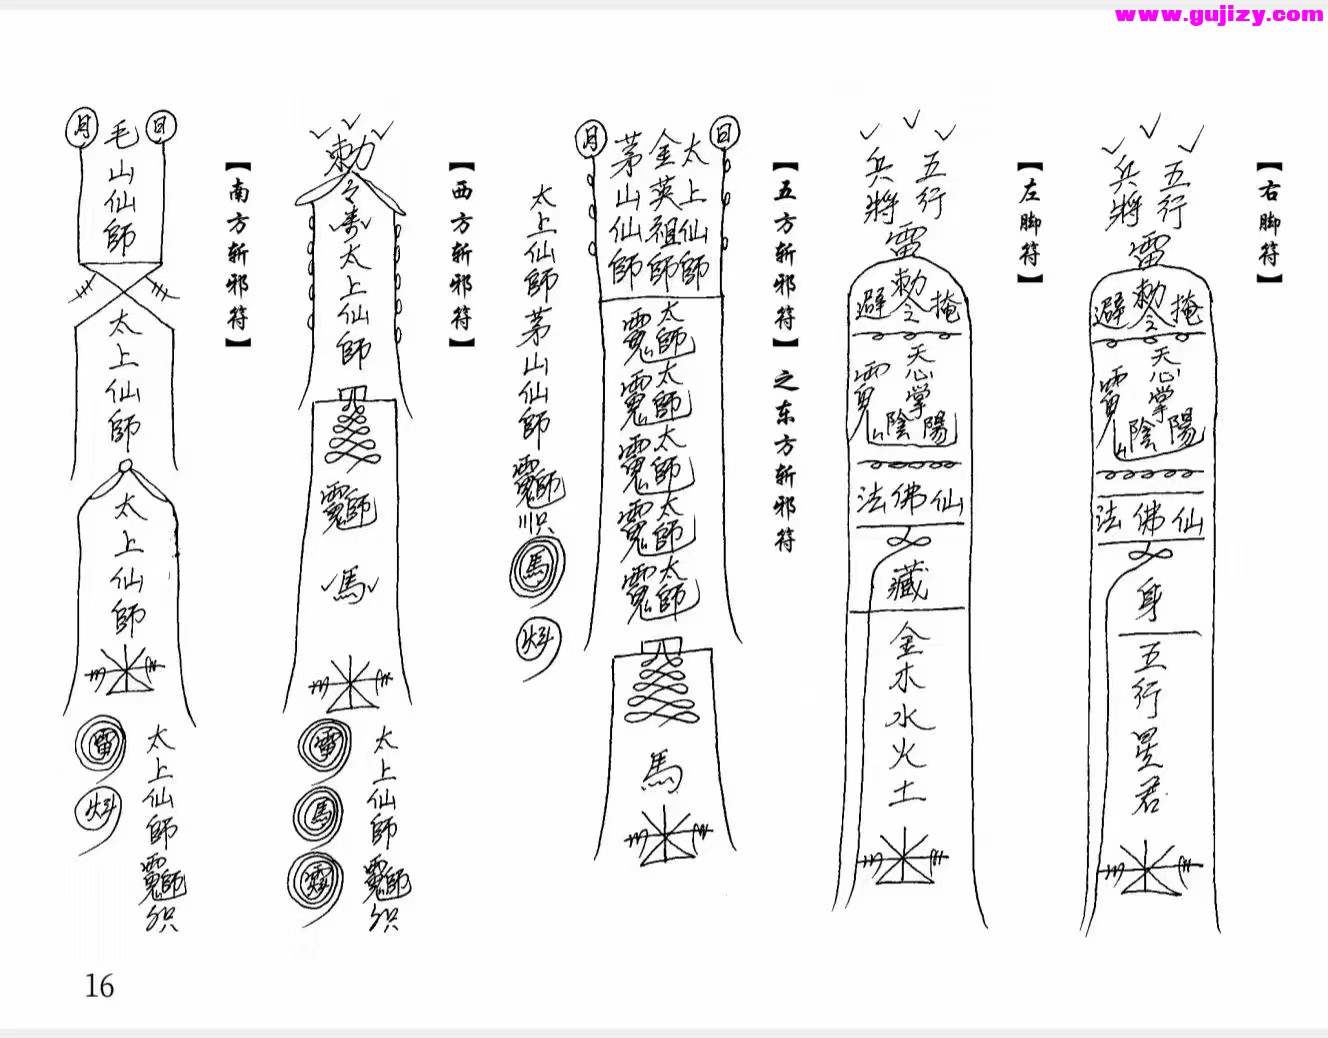 www.gujizy.com
【右脚符】
五行
兵將
雷
勅令
掩
避
天心掌
陰陽
仙佛法
身
五行星君
【左脚符】
五行
兵將
雷
勅令
掩
避
天心掌
陰陽
仙佛法
藏
金木水火土
【五方斩邪符】之东方斩邪符
日
月
太上仙師
金英祖師
茅山仙師
太師
太師
太師
太師
太師
馬
太上仙師茅山仙師
馬
【西方斩邪符】
勅令
太上仙師
師
馬
雷
馬
太上仙師
【南方斩邪符】
日
月
毛山仙師
太上仙師
太上仙師
雷
太上仙師
16